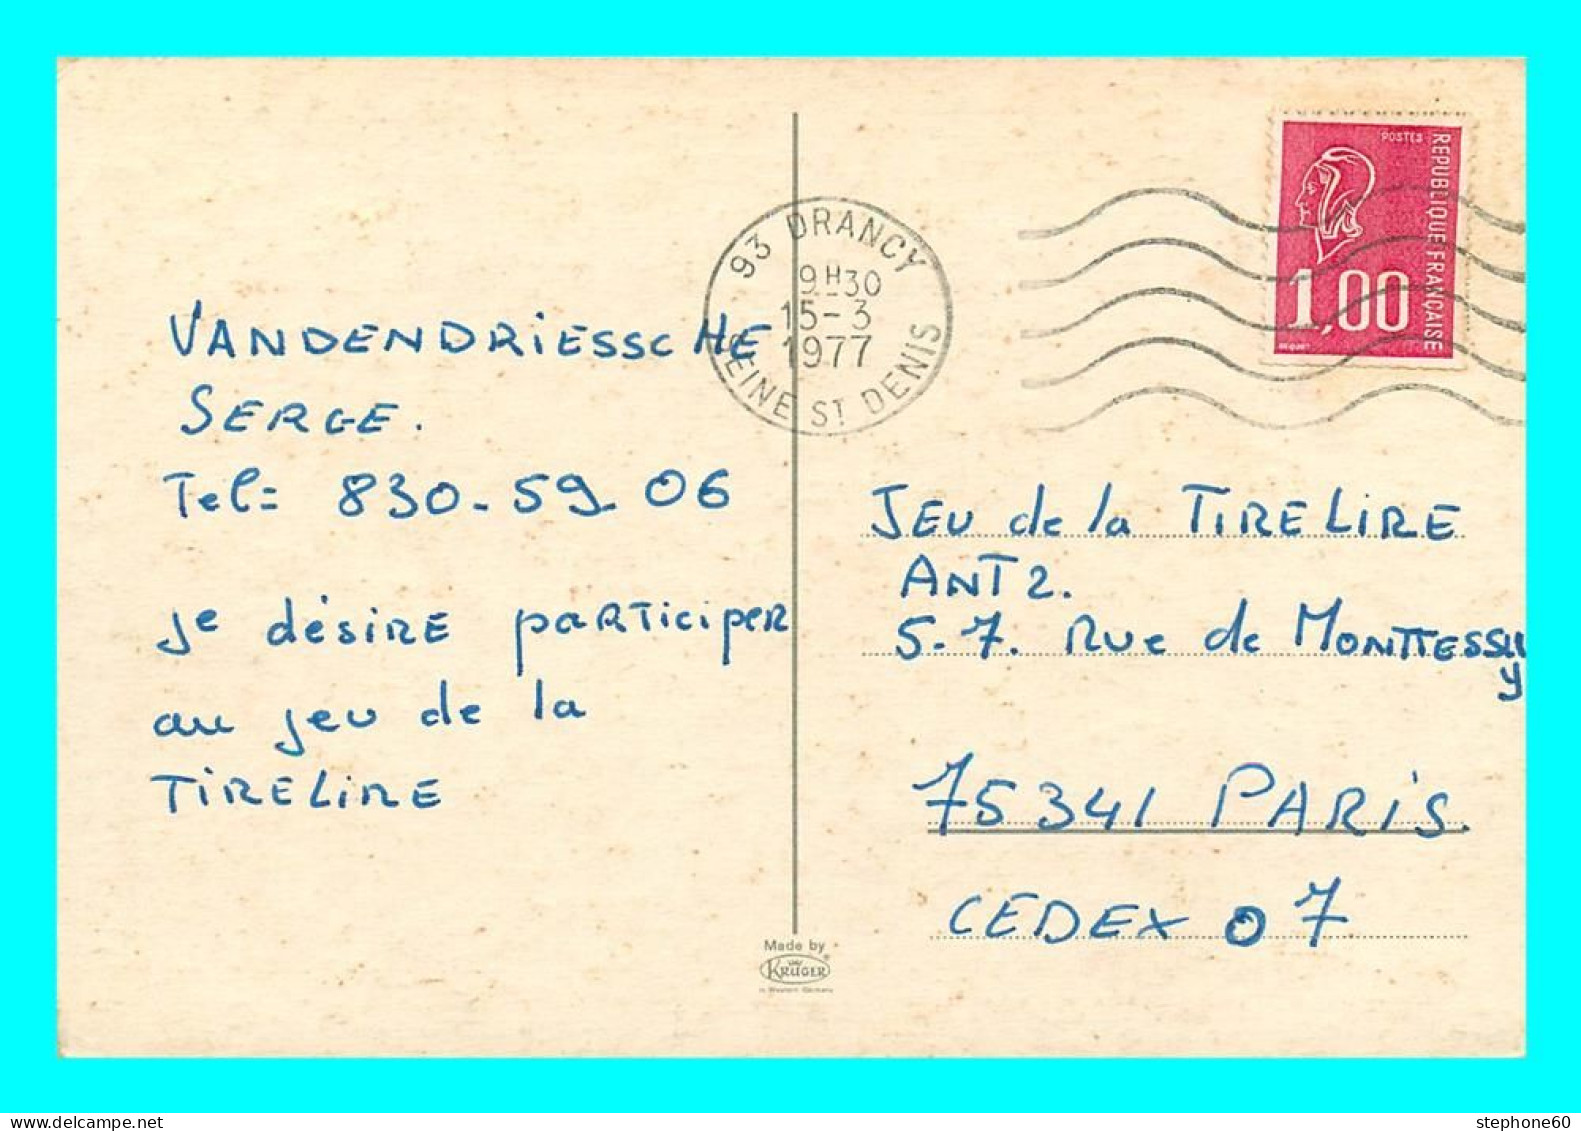 93 DRANCY
9H30
15-3
1977
SEINE ST DENIS
POSTES
REPUBLIQUE FRANÇAISE
1,00
VANDENDRIESSCHE
SERGE.
Tel= 830-59-06
je désire participer
au jeu de la
TIRELIRE
JEU de la TIRELIRE
ANT 2.
5-7. Rue de MONTTESSUY
75341 PARIS.
CEDEX 07
Made by
KRÜGER
in Western Germany
stephone60